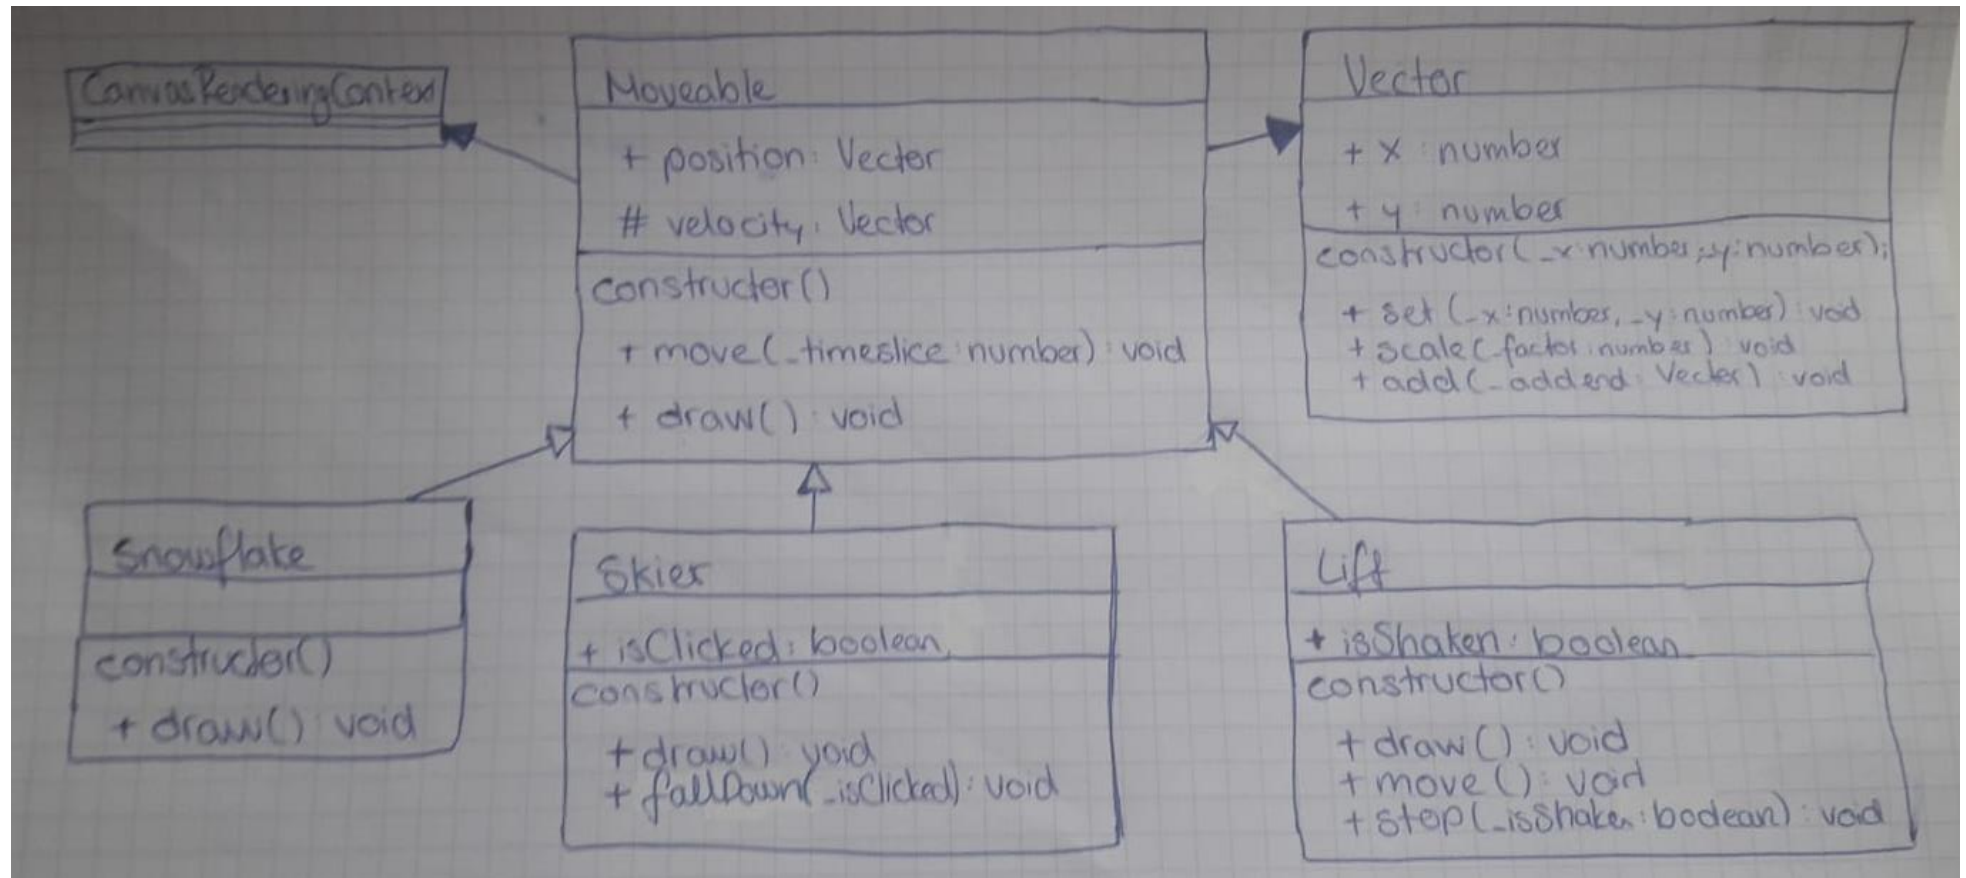 CanvasRenderingContext
Moveable
+ position: Vector
# velocity: Vector
constructor()
+ move(_timeslice: number): void
+ draw(): void
Vector
+ x: number
+ y: number
constructor(_x:number,_y:number);
+ set (_x:number, _y:number): void
+ scale(_factor:number): void
+ add(_addend: Vector): void
Snowflake
constructor()
+ draw(): void
Skier
+ isClicked: boolean
constructor()
+ draw(): void
+ fallDown(_isClicked): void
Lift
+ isShaken: boolean
constructor()
+ draw(): void
+ move(): void
+ stop(_isShaken:boolean): void